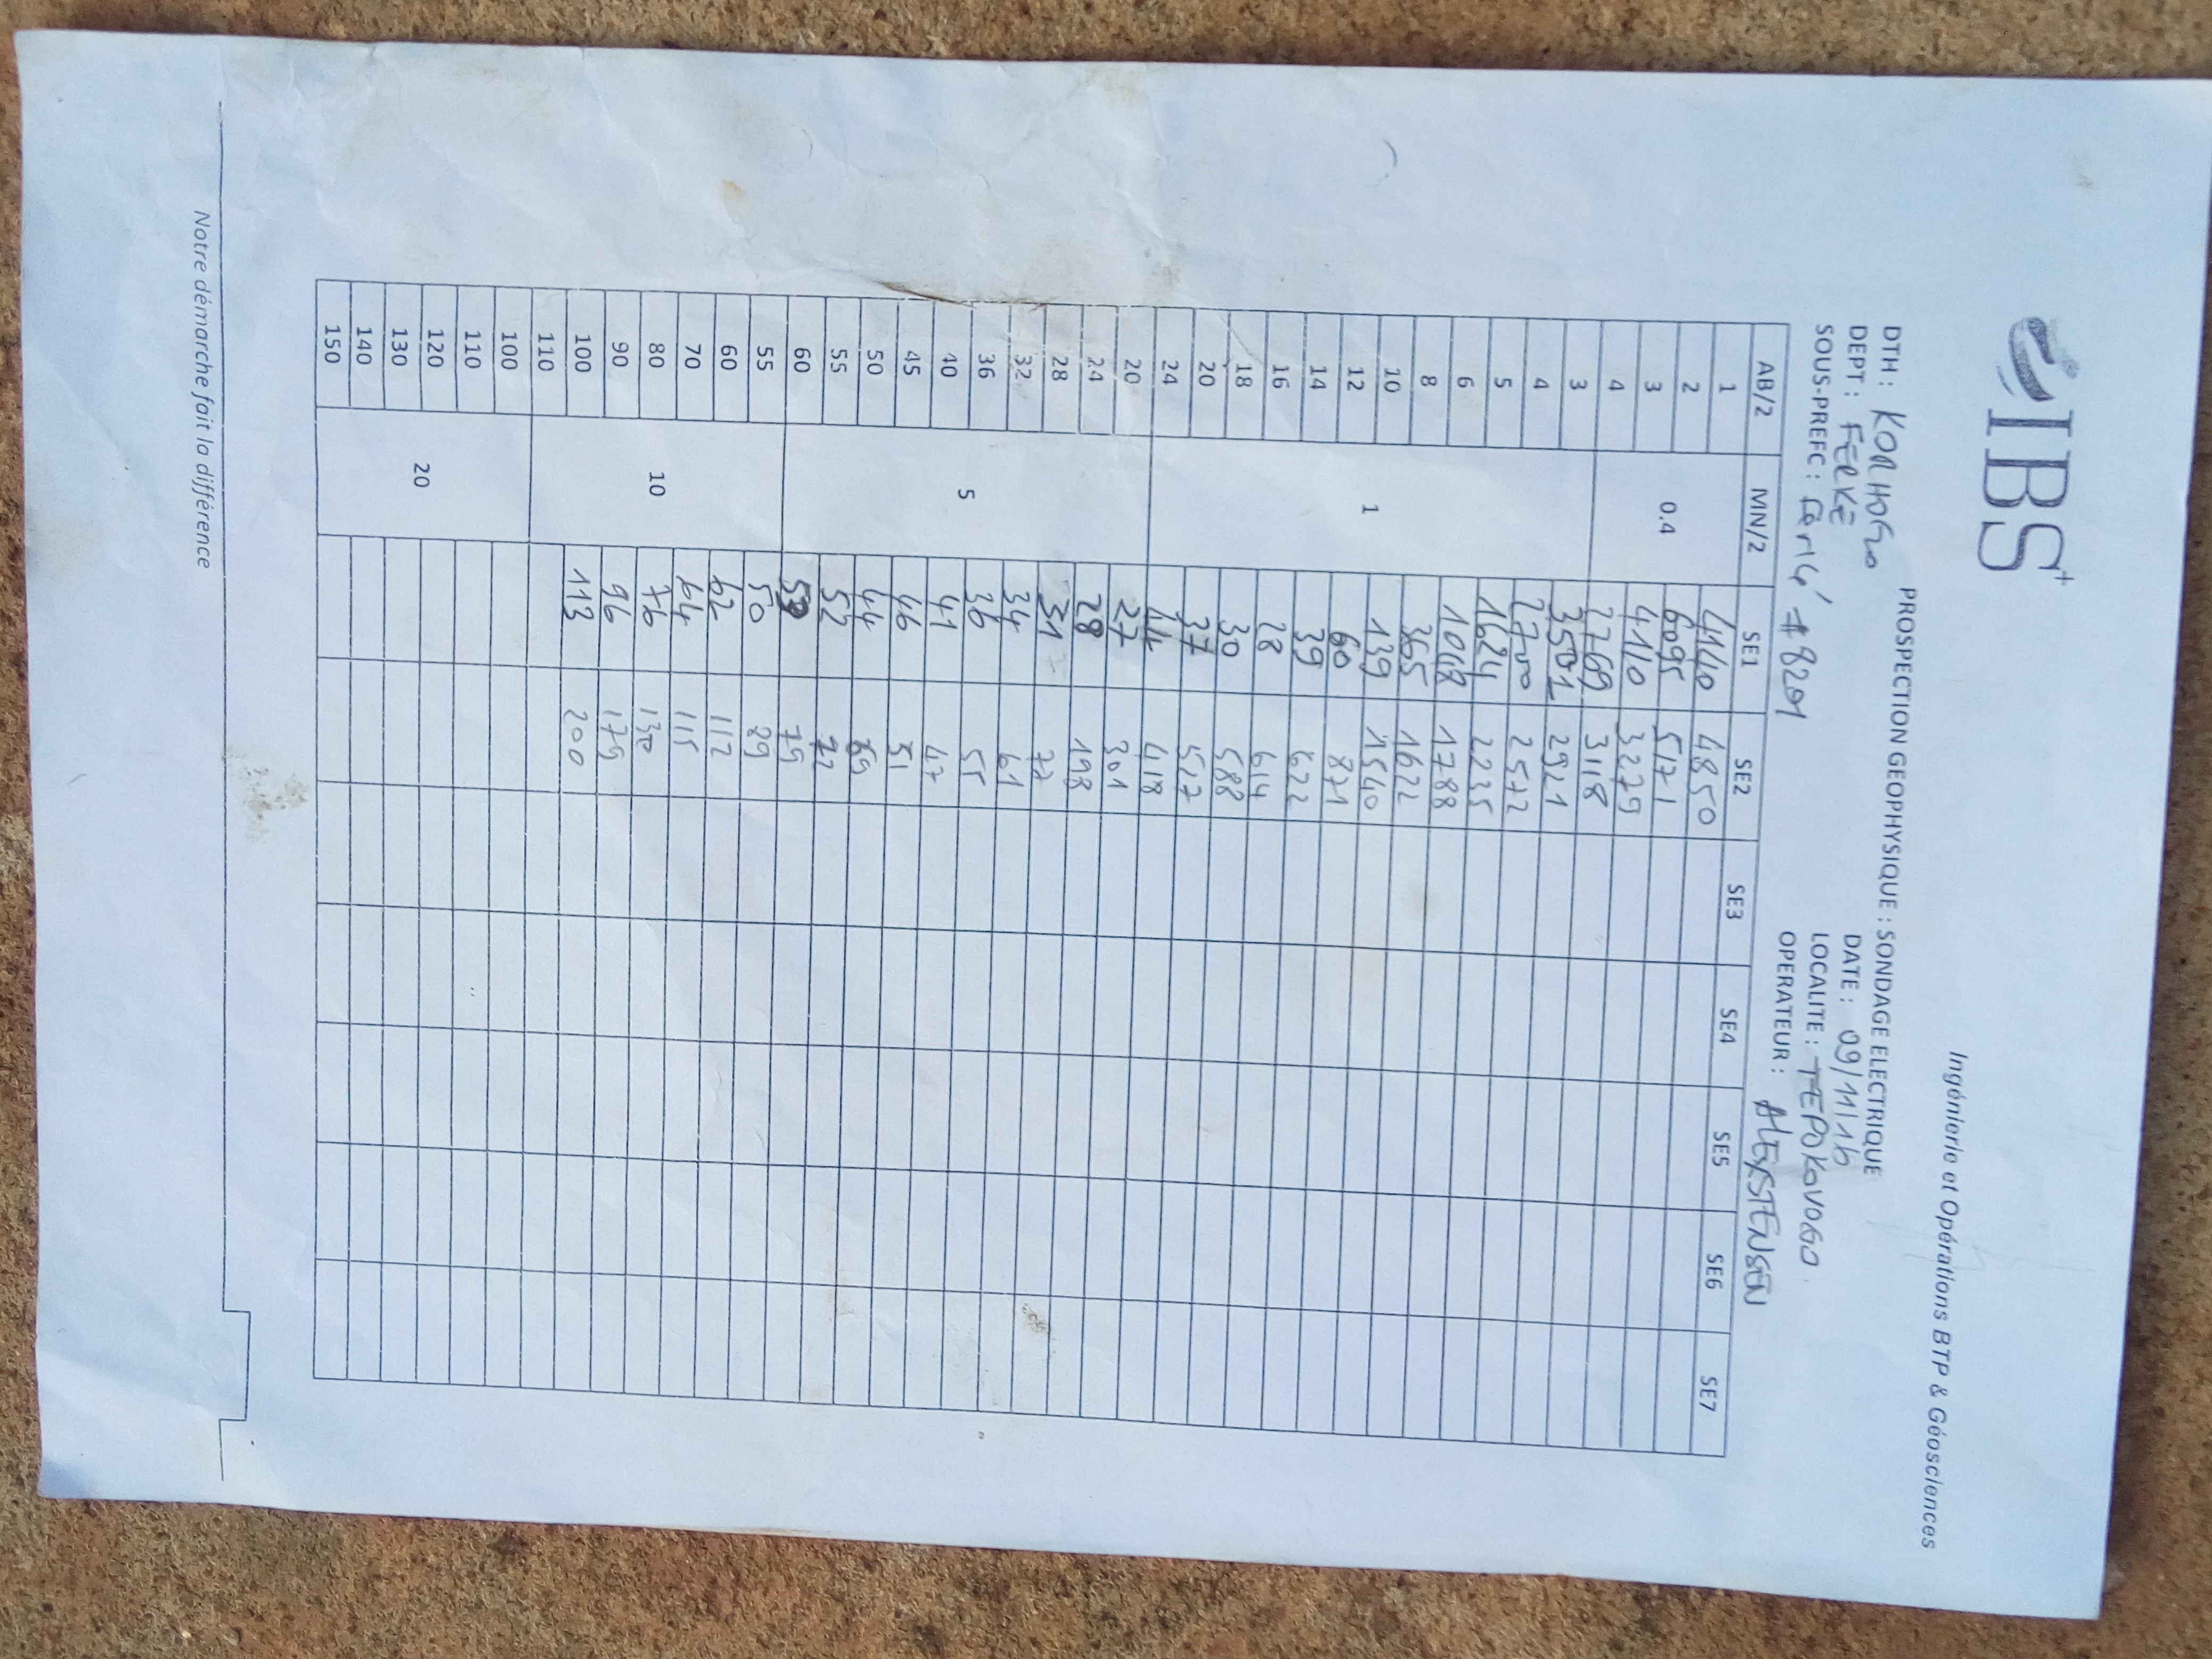 IBS+
Ingénierie et Opérations BTP & Géosciences
PROSPECTION GEOPHYSIQUE : SONDAGE ELECTRIQUE
DTH : KORHOGO DATE : 09/11/16
DEPT : FERKE LOCALITE : TEPOKOVOGO
SOUS-PREFC : OPERATEUR :
AB/2 MN/2 SE1 SE2 SE3 SE4 SE5 SE6 SE7
1 0.4 4140 4850
2 6095 5171
3 4110 3279
4 2769 3118
3 1 3501 2921
4 2700 2572
5 1624 2235
6 1048 1788
8 365 1622
10 139 1540
12 60 871
14 39 622
16 28 614
18 30 588
20 37 527
24 44 418
20 5 27 301
24 28 198
28 31 77
32 34 61
36 36 55
40 41 47
45 46 51
50 44 69
55 52 72
60 79
55 10 50 89
60 62 112
70 64 115
80 76 130
90 96 179
100 113 200
110
100 20
110
120
130
140
150
Notre démarche fait la différence